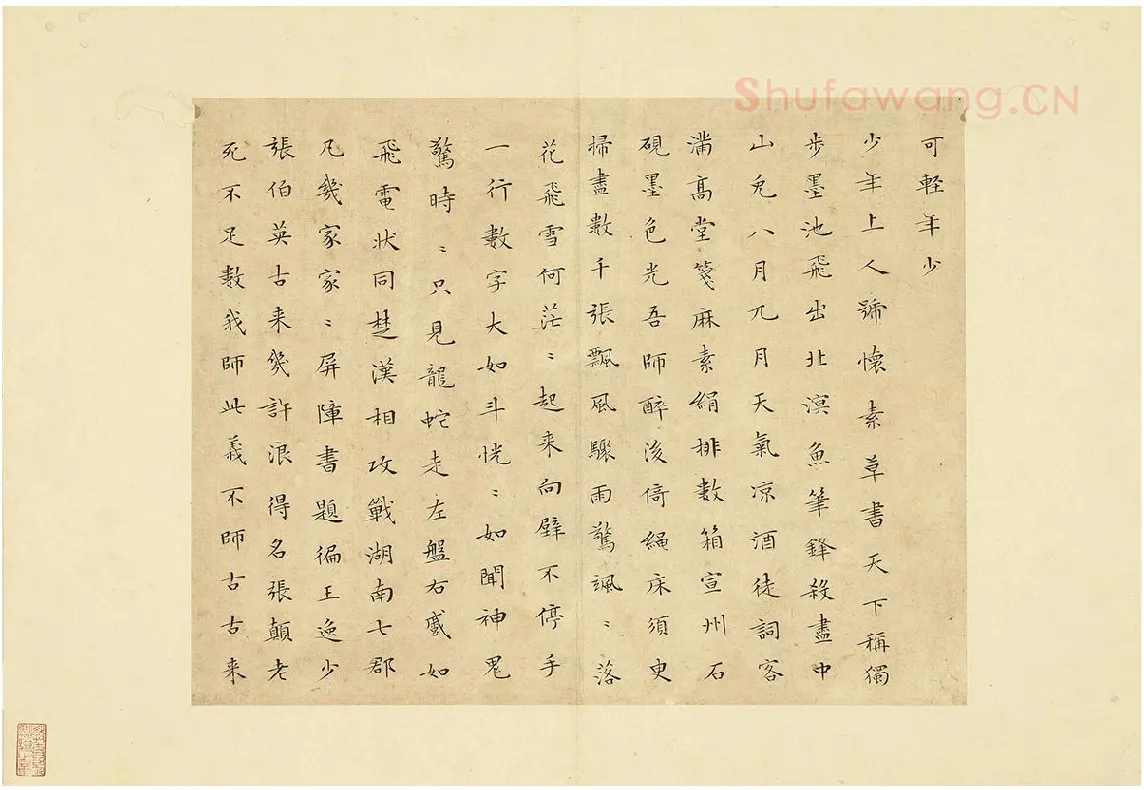 Shufawang.CN
可軽年少
少年上人號懷素草書天下稱獨
步墨池飛出北溟魚筆鋒殺盡中
山兔八月九月天氣凉酒徒詞客
滿髙堂箋麻素絹排數箱宣州石
硯墨色光吾師醉後倚繩床須臾
掃盡數千張飄風驟雨驚颯〻落
花飛雪何茫〻起来向壁不停手
一行數字大如斗恍〻如聞神鬼
驚時〻只見龍蛇走左盤右蹙如
飛電状同楚漢相攻戰湖南七郡
凡幾家家〻屏障書題徧王逸少
張伯英古来幾許浪得名張顛老
死不足數我師此義不師古古来